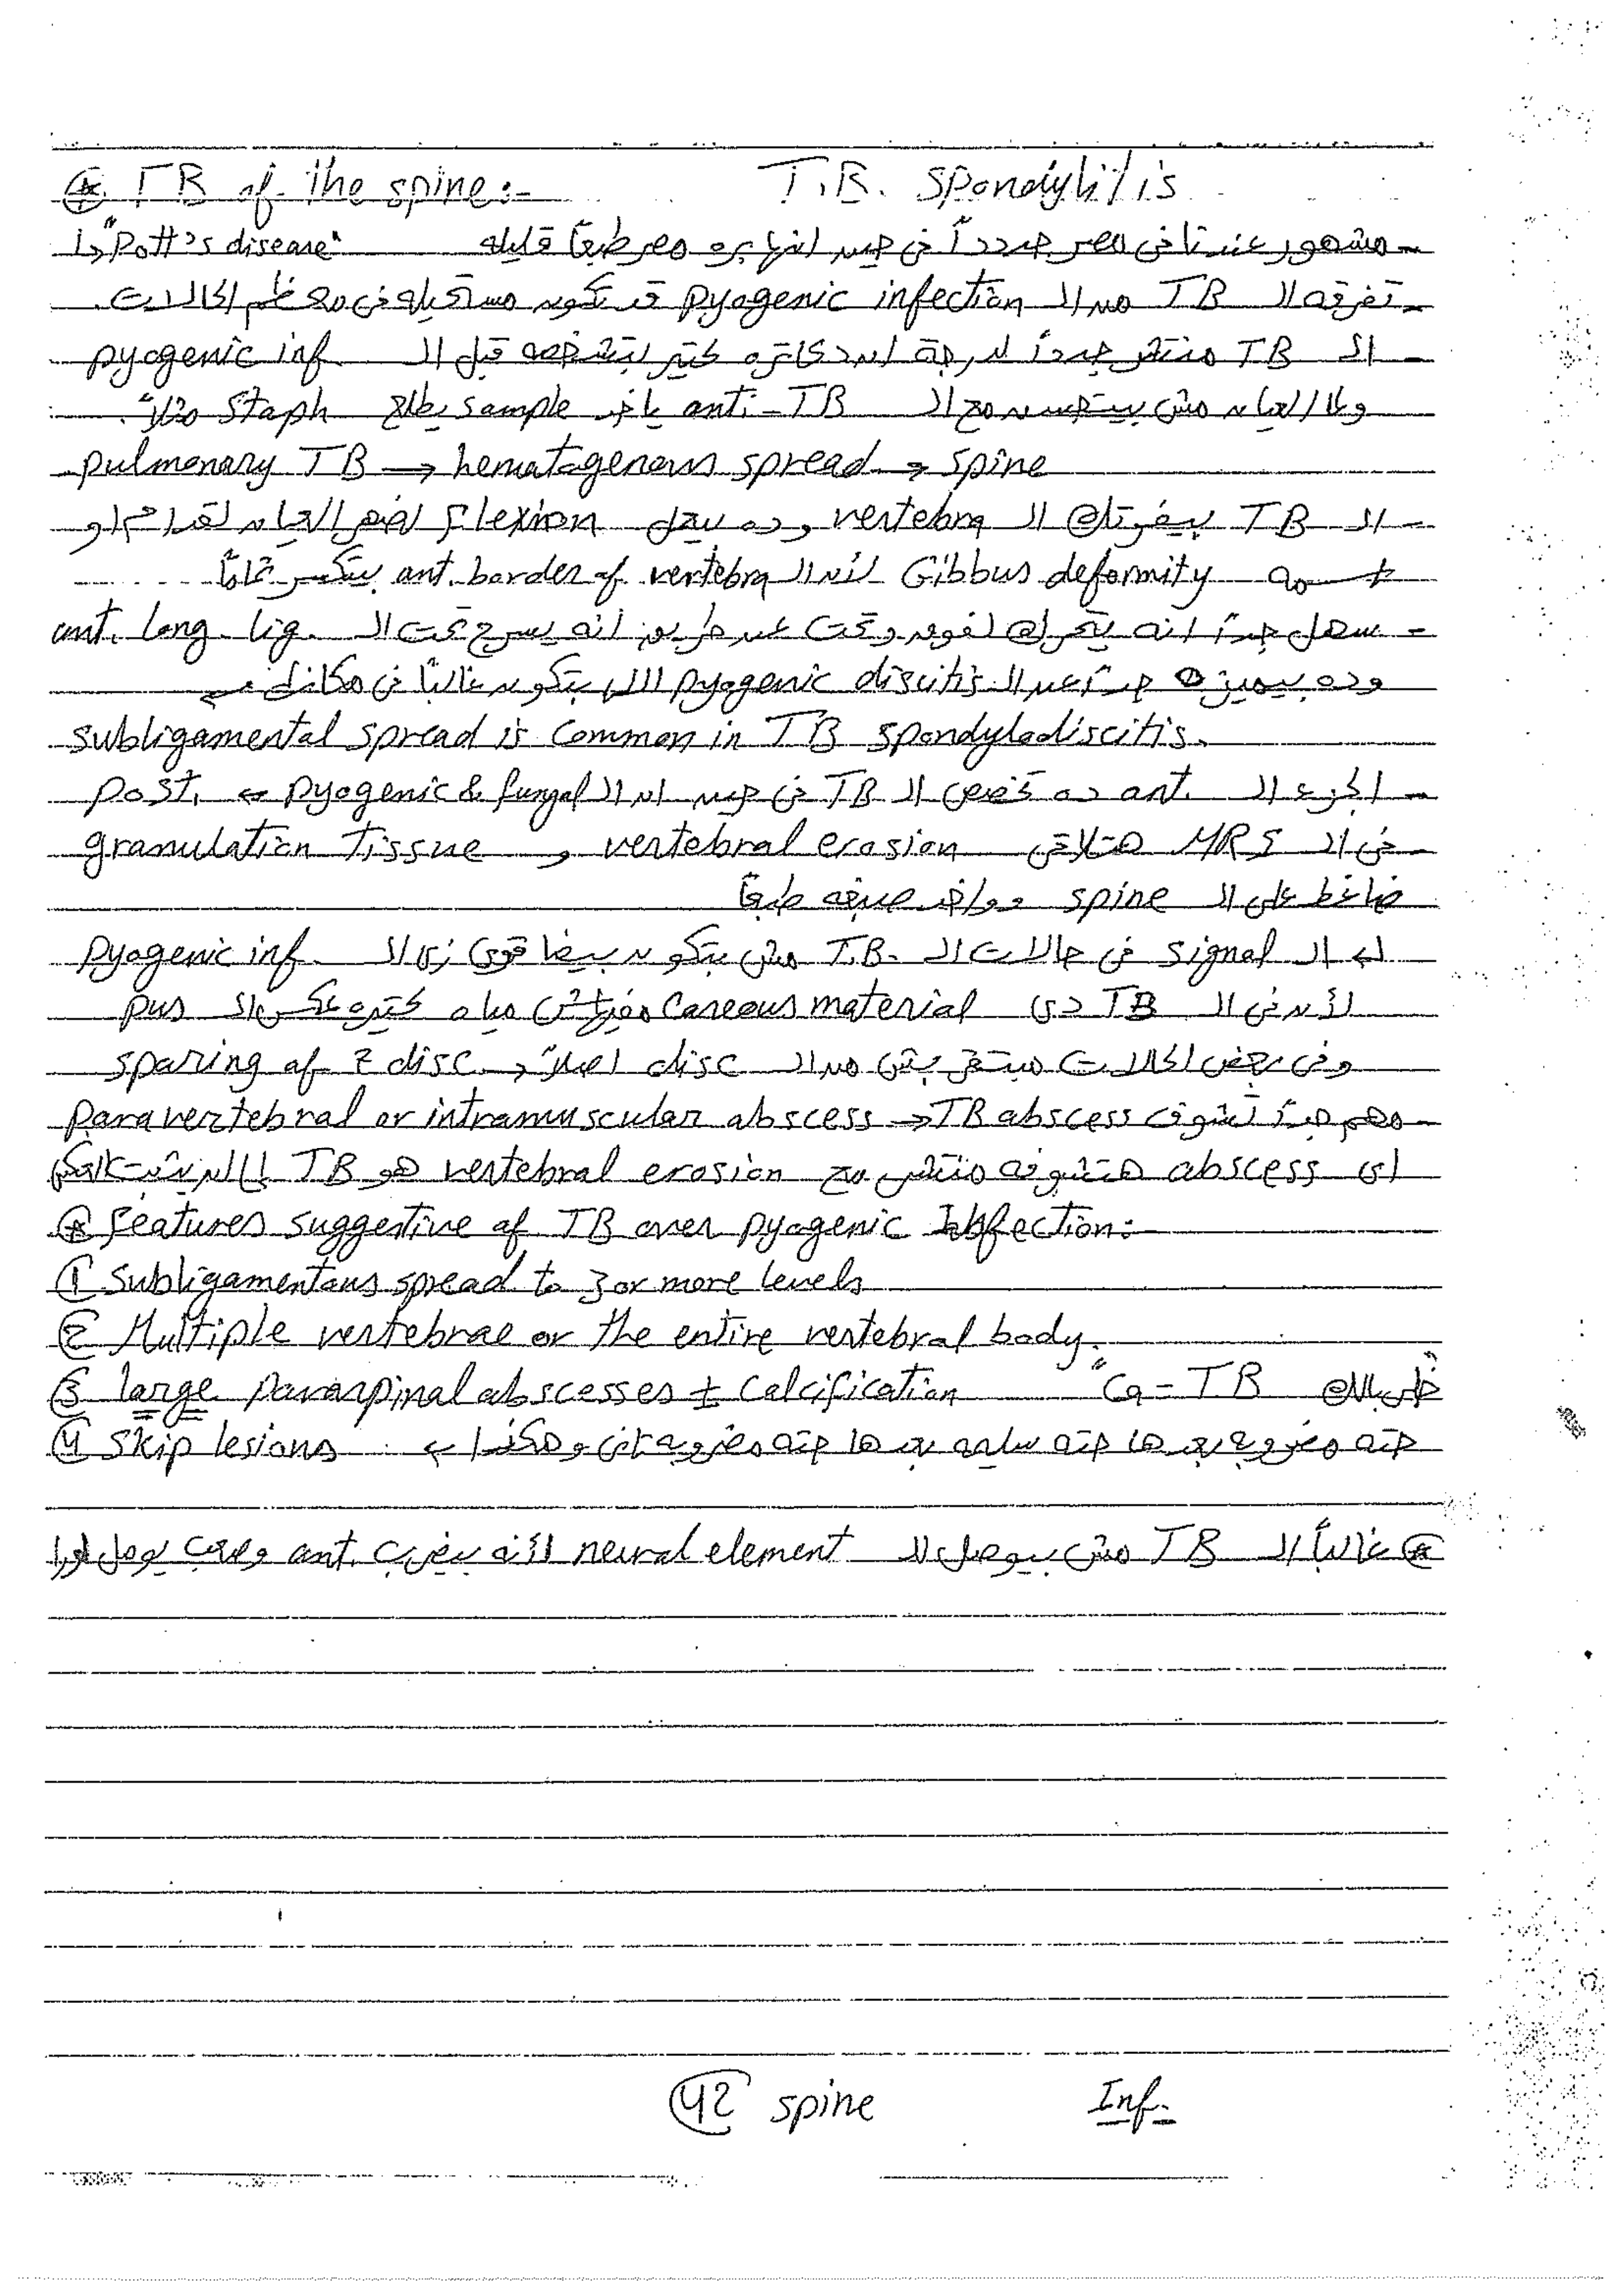 ⊛ TB of the spine:- T.B. Spondylitis
- مشهور عندنا في مصر جداً في حين انها بره مصر طبعاً قليلة "Pott's disease" جداً
- تفرقة الـ TB من الـ pyogenic infection قد تكون مستحيلة في معظم الحالات.
- الـ TB منتشر جداً لدرجة ان دكاترة كتير بتشخصه قبل الـ pyogenic inf.
ولما العيان مش بيتحسن مع الـ anti-TB ياخد sample يطلع Staph مثلاً.
pulmonary TB → hematogenous spread → spine
- الـ TB بيفرتك الـ vertebra وده بيعمل flexion لضهر العيان لقدام او
Gibbus deformity لأن الـ ant. border of vertebra بيتكسر تماماً
- سهل جداً انه يتحرك لفوق وتحت عن طريق انه يسرح تحت الـ ant. long. lig.
وده بيميزه جداً عن الـ pyogenic discitis اللي بتكون غالباً في مكانها
subligamental spread is common in TB spondylodiscitis.
- الجزء الـ ant. ده تخصص الـ TB في حين ان الـ pyogenic & fungal ← post.
- في الـ MRI هتلاقي vertebral erosion و granulation tissue
ضاغط على الـ spine ومواخد صبغه طبعاً
لـ الـ signal في حالات الـ T.B. مش بتكون بيضا قوي زي الـ pyogenic inf.
لأن في الـ TB دي caseous material مفيهاش مياه كتير عكس الـ pus
وفي بعض الحالات مبتقربش من الـ disc اصلاً و sparing of z disc
- مهم جداً تشوف paravertebral or intramuscular abscess → TB abscess
اي abscess هتشوفه منتشر مع vertebral erosion هو TB
⊛ features suggestive of TB over pyogenic Infection:
① Subligamentous spread to 3 or more levels
② Multiple vertebrae or the entire vertebral body.
③ large paraspinal abscesses ± calcification "Ca = TB خلي بالك"
④ Skip lesions ← حته مضروبه بعدها حته سليمه بعدها حته مضروبه تاني وهكذا
⊛ غالباً الـ TB مش بيوصل الـ neural element لأنه بيضرب ant. وصعب يوصل لورا
42 spine Inf.